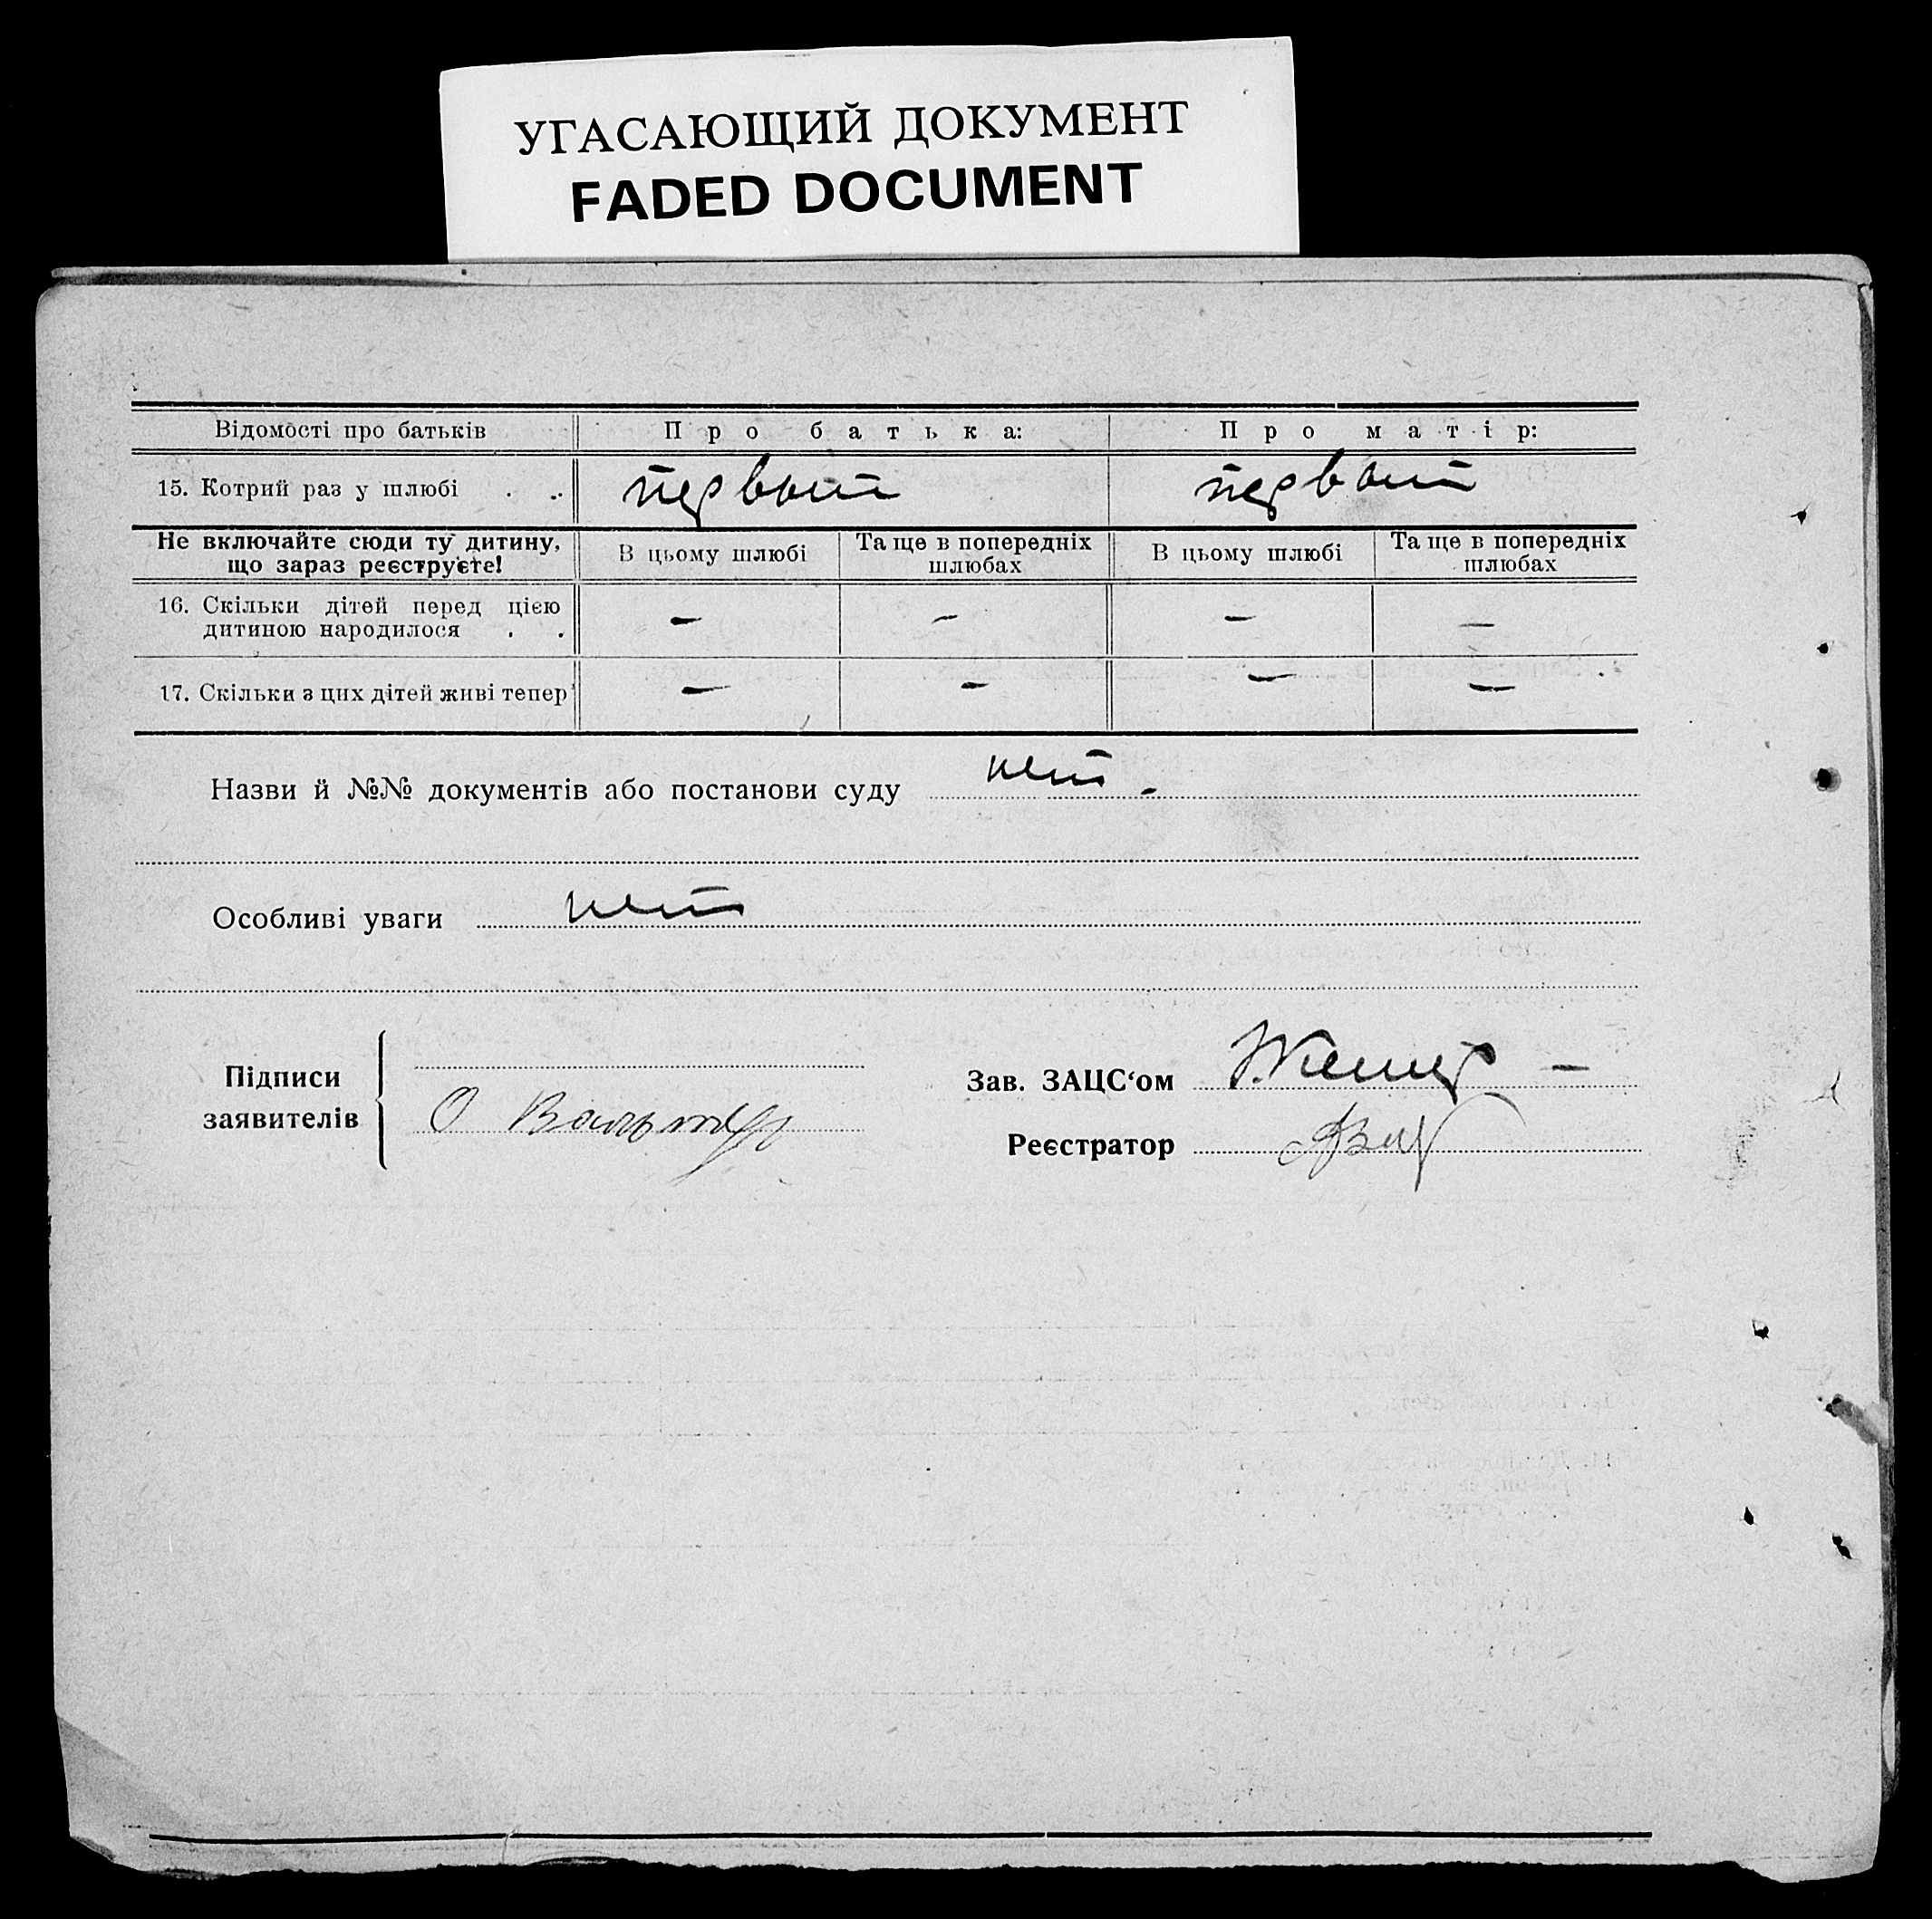 УГАСАЮЩИЙ ДОКУМЕНТ
FADED DOCUMENT
Відомості про батьків Про батька: Про матір:
15. Котрий раз у шлюбі . . первый первый
Не включайте сюди ту дитину, що зараз реєструєте! В цьому шлюбі Та ще в попередніх шлюбах В цьому шлюбі Та ще в попередніх шлюбах
16. Скільки дітей перед цією дитиною народилося . . — — — —
17. Скільки з цих дітей живі тепер — — — —
Назви й №№ документів або постанови суду нет.
Особливі уваги нет
Підписи заявителів О Вальтер
Зав. ЗАЦС‘ом
Реєстратор